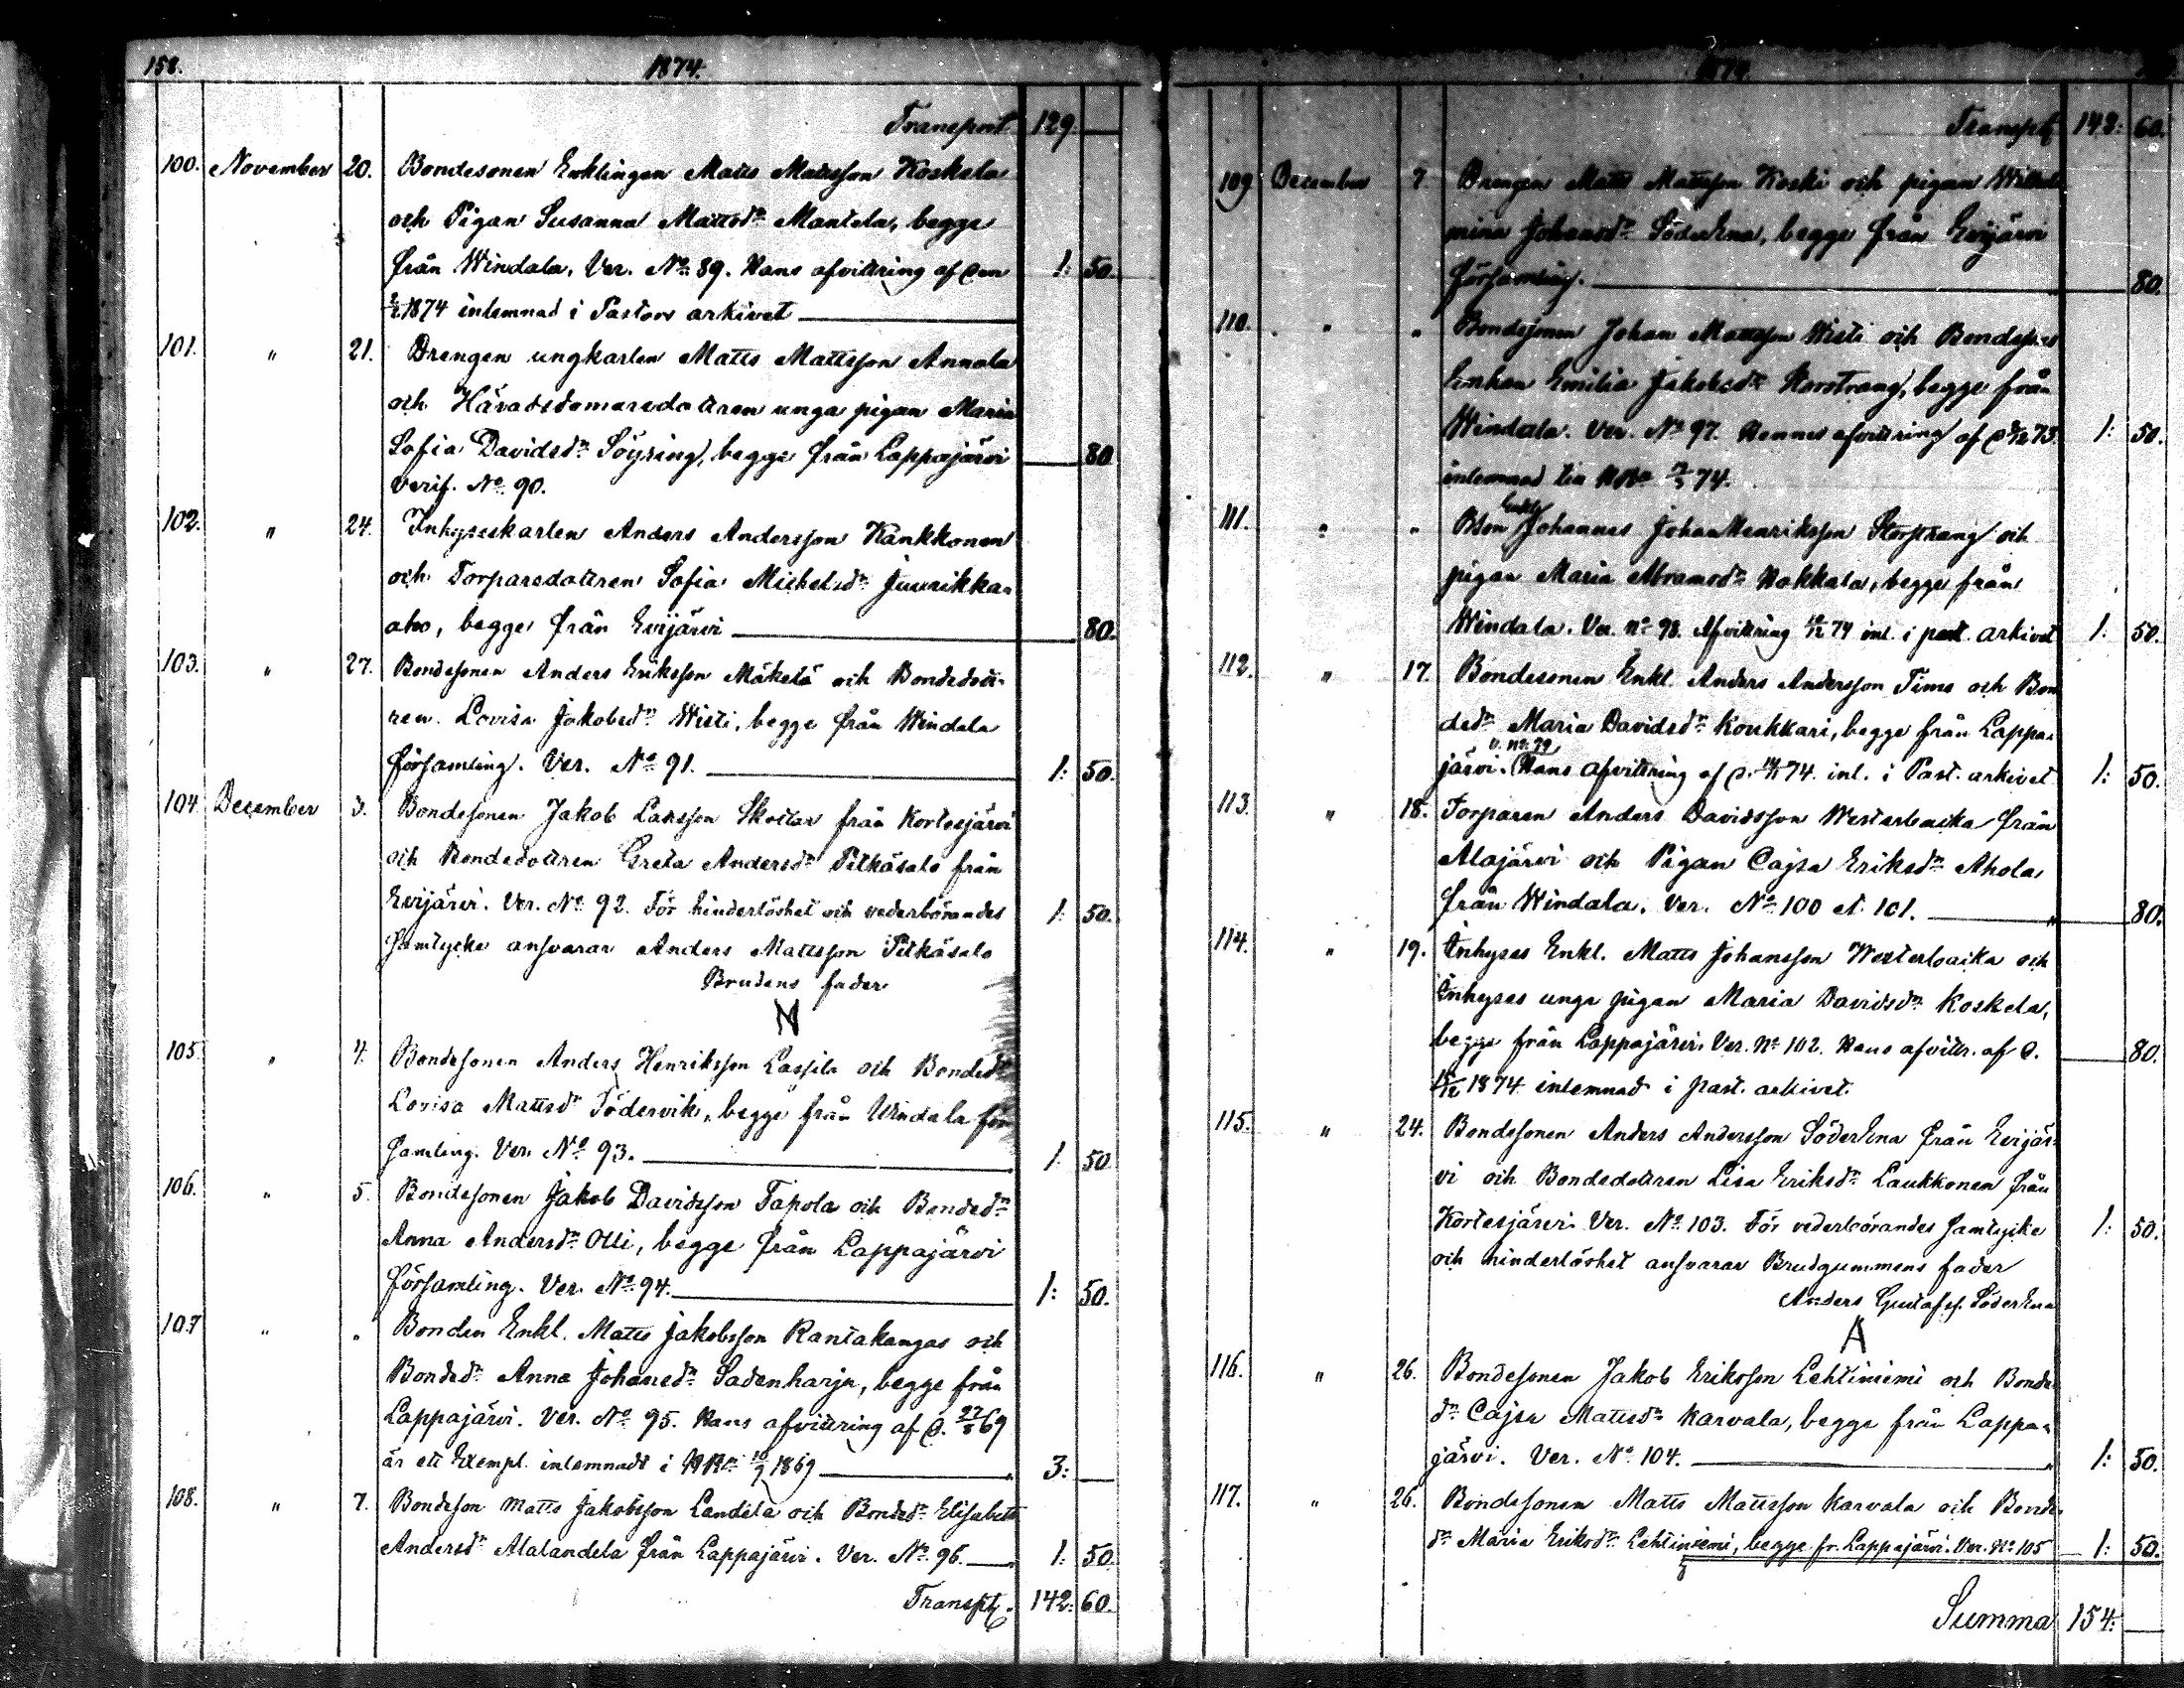 158.
1874.
Transport 129.
100. November 20. Bondesonen Enklingen Matts Mattsson Koskela
och Pigan Susanna Mattsdr Mantela, begge
från Windala, Ver. No 89. Hans afvittring af den 1: 50
1874 inlemnad i Pastors arkivet
101. " 21. Drengen ungkarlen Matts Mattsson Annala
och Häradsdomaredottren unga pigan Maria
Sofia Davidsdr Söyring, begge från Lappajärvi 80
verif. No 90.
102. " 24. Inhyseskarlen Anders Andersson Kankkonen
och Torparedottren Sofia Michelsdr Juurikka-
aho, begge från Evijärvi 80.
103. " 27. Bondesonen Anders Eriksson Mäkelä och Bondedott-
ren Lovisa Jakobsdr Wisti, begge från Windala
församling. Ver. No 91. 1: 50.
104. December 3. Bondesonen Jakob Larsson Skyttar från Kortesjärvi
och Bondedottren Greta Andersdr Pitkäsalo från
Evijärvi. Ver. No 92. För hinderlöshet och vederbörandes 1: 50.
samtycke ansvarar Anders Mattsson Pitkäsalo
Brudens fader
105. " 4. Bondesonen Anders Henriksson Lassila och Bondedr
Lovisa Mattsdr Södervik, begge från Windala för
samling. Ver. No 93. 1: 50
106. " 5. Bondesonen Jakob Davidsson Tapola och Bondedr
Anna Andersdr Olli, begge från Lappajärvi
församling. Ver. No 94. 1: 50.
107 " " Bonden Enkl. Matts Jakobsson Rantakangas och
Bondedr Anna Johansdr Sadenharju, begge från
Lappajärvi. Ver. No 95. Hans afvittring af d. 27/8 69
är ett Exempl. inlemnadt i 10/9 1869 3:
108. " 7. Bondeson Matts Jakobsson Landela och Bondedr Elisabeth
Andersdr Alalandela från Lappajärvi. Ver. No 96. 1: 50
Transpt. 142: 60.
1874.
Transpt 142: 60.
109 December 7. Drengen Matts Mattsson Koski och pigan Wilhel
mina Johansdr SöderEna, begge från Evijärvi
församling. 80.
110. " " Bondesonen Johan Mattsson Wisti och Bondesons
Enkan Emilia Jakobsdr Storstrang, begge från
Windala. Ver. No 97. Hennes afvittring af d 73. 1: 50.
inlemnad 74.
111. " " Bson Enkl Johannes Johan Henriksson Storstrang och
pigan Maria Abramsdr Hakkala, begge från
Windala. Ver. No 98. Afvittring 74 inl. i past. arkivet 1: 50.
112. " 17. Bondesonen Enkl. Anders Andersson Timo och Bon
dedr Maria Davidsdr Koukkari, begge från Lappa-
järvi. V. No 99 Hans afvittring af d. 74. inl. i Past. arkivet 1: 50.
113. " 18. Torparen Anders Davidsson Westerbacka från
Alajärvi och Pigan Cajsa Eriksdr Ahola
från Windala. Ver. No 100 et. 101. 80.
114. " 19. Inhyses Enkl. Matts Johansson Westerbacka och
Inhyses unga pigan Maria Davidsdr Koskela,
begge från Lappajärvi. Ver. No 102. Hans afvittr. af d. 80.
1874 inlemnad i past. arkivet.
115. " 24. Bondesonen Anders Andersson SöderEna från Evijär-
vi och Bondedottren Lisa Eriksdr Laukkonen från
Kortesjärvi. Ver. No 103. För vederbörandes samtycke 1: 50.
och hinderlöshet ansvarar Brudgummens fader
Anders Gustafss. SöderEna
116. " 26. Bondesonen Jakob Eriksson Lehtiniemi och Bonde
dr Cajsa Mattsdr Karvala, begge från Lappa-
järvi. Ver. No 104. 1: 50.
117. " 26. Bondesonen Matts Mattsson Karvala och Bonde
dr Maria Eriksdr Lehtiniemi, begge fr. Lappajärvi. Ver. No 105 1: 50.
Summa 154: